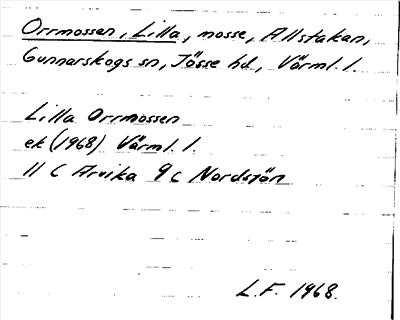 Orrmossen, Lilla, mosse, Allstakan,
Gunnarskogs sn, Jösse hd, Värml. l.
Lilla Orrmossen
ek (1968) Värml. l.
11 C Arvika 9 c Nordsjön
L.F. 1968.